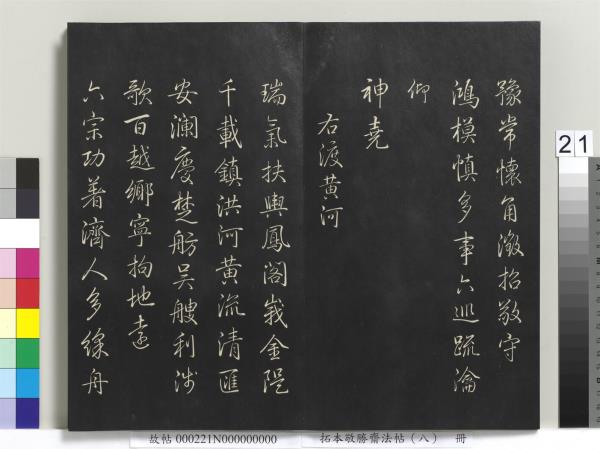 豫常懷角瀓招敬守
鴻模慎多事六巡疏瀹
仰
神堯
右渡黃河
瑞氣扶輿鳳閣峩金隄
千載鎮洪河黃流清匯
安瀾慶楚舫吳艘利涉
歌百越鄉寧拘地遠
六宗功著濟人多綵舟
21
故帖 000221N000000000
拓本敬勝齋法帖（八） 冊